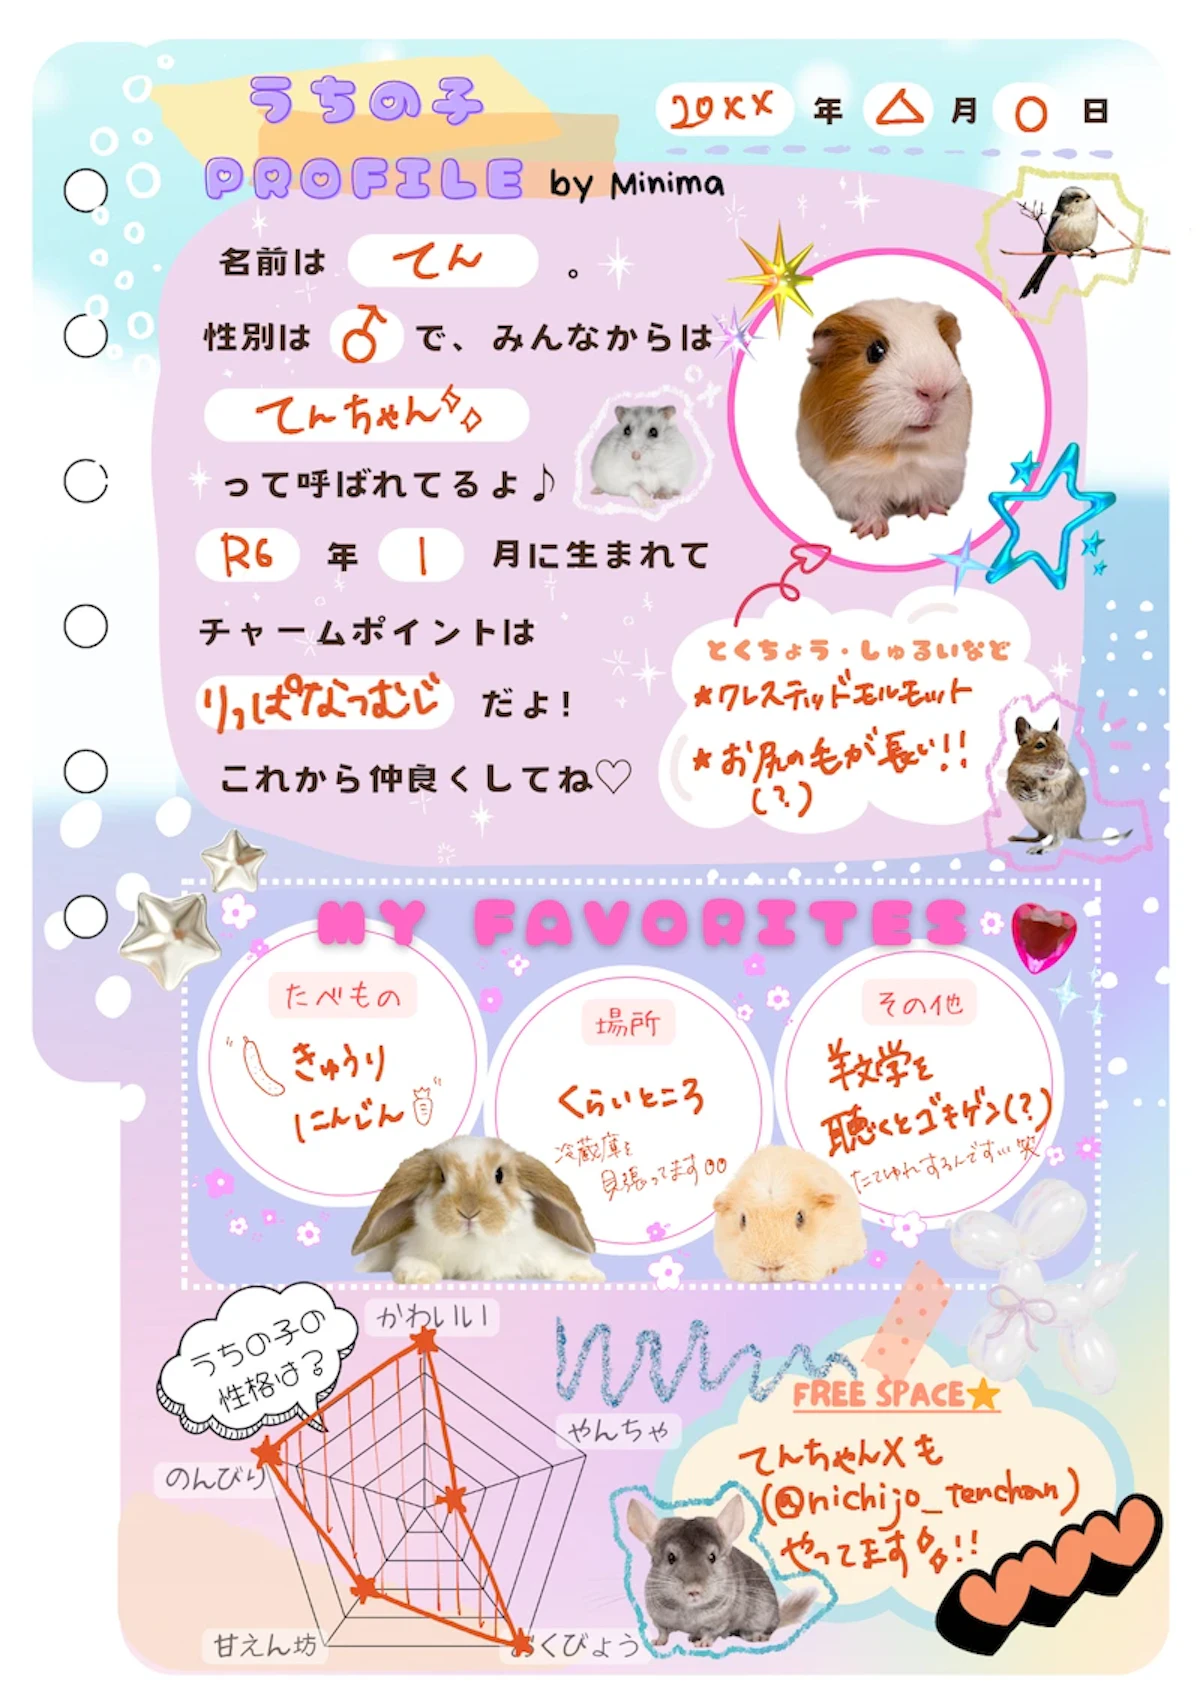 うちの子
PROFILE by Minima
20XX 年 △ 月 ○ 日
名前は てん 。
性別は ♂ で、みんなからは
てんちゃん✨
って呼ばれてるよ♪
R6 年 1 月に生まれて
チャームポイントは
りっぱなつむじ だよ!
これから仲良くしてね♡
とくちょう・しゅるいなど
★クレステッドモルモット
★お尻の毛が長い!!
(?)
MY FAVORITES
たべもの
きゅうり
にんじん
場所
くらいところ
冷蔵庫を
見張ってます👀
その他
羊文学を
聴くとゴキゲン(?)
たてゆれするんです…笑
うちの子の
性格は?
かわいい
やんちゃ
のんびり
甘えん坊
おくびょう
FREE SPACE★
てんちゃんXも
(@nichijo_tenchan)
やってます✨!!